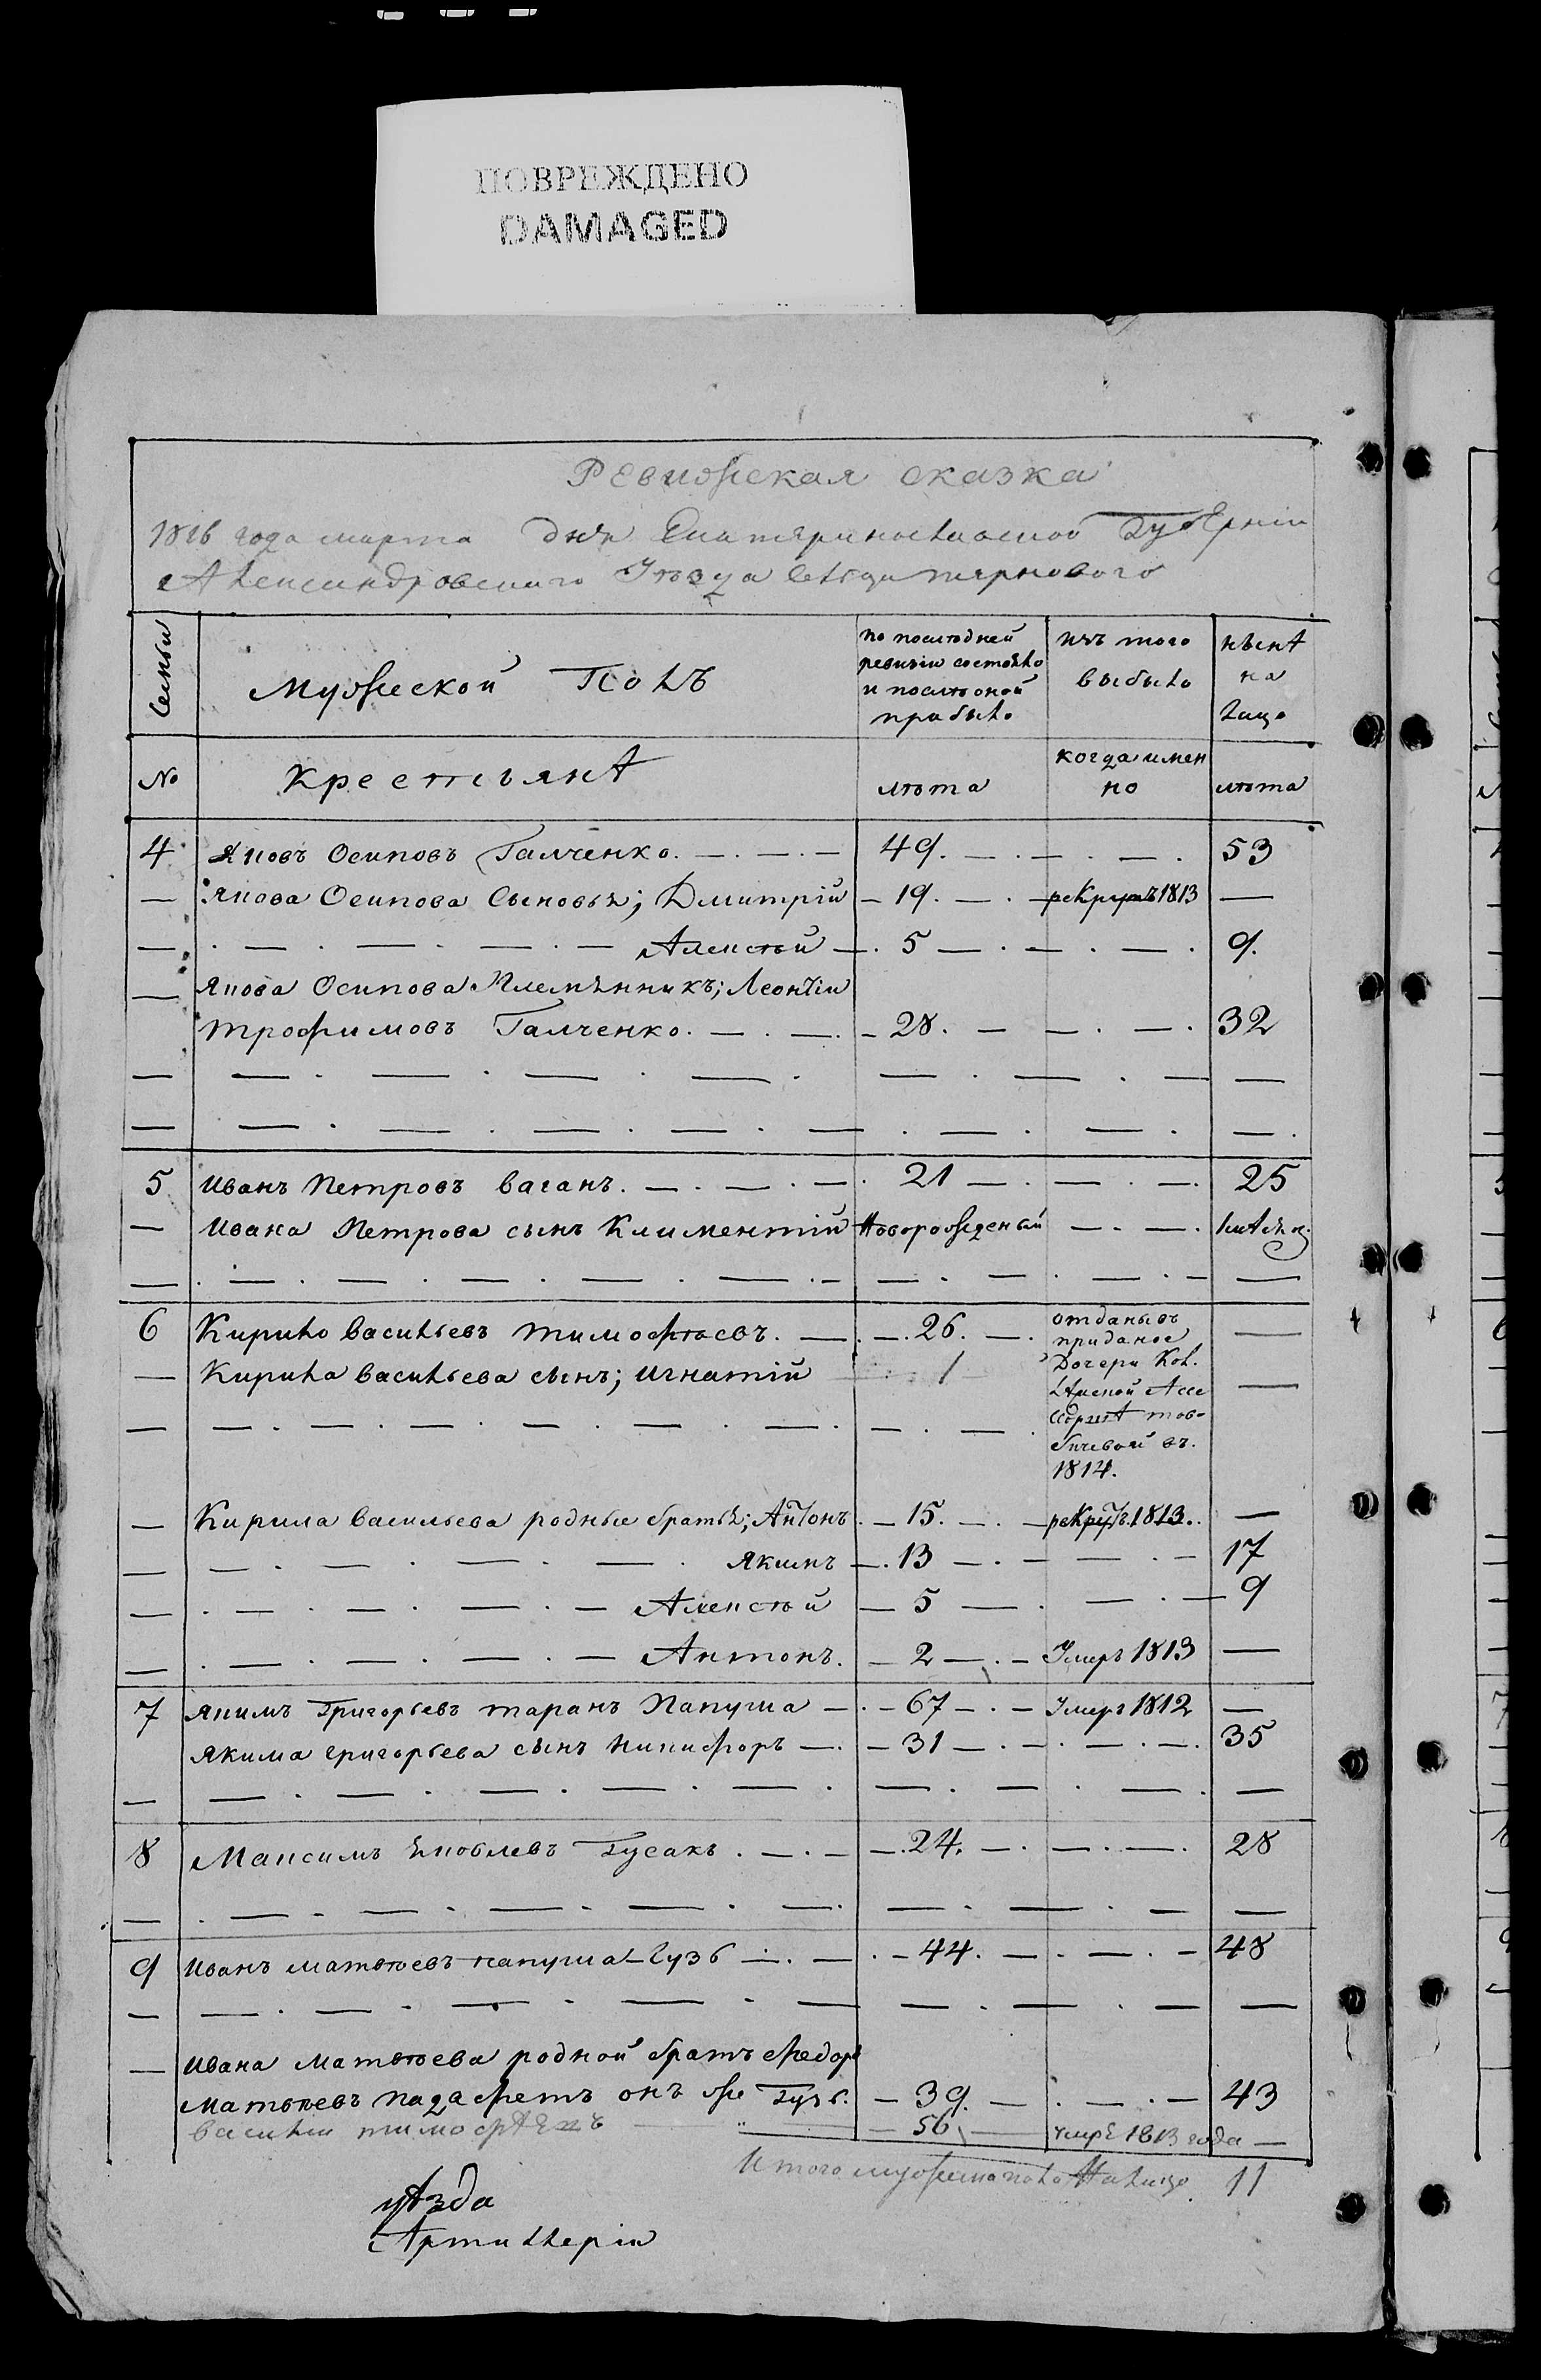 ПОВРЕЖДЕНО
DAMAGED
Ревижская сказка
1816 года марта дня Екатеринославской Губерніи
Александровского Уѣзда Терноваго
Семьи
Мужеской Полъ
по последней ревизіи состояло и после оной прибыло
изъ того выбыло
нынѣ на лицо
№ Крестьянѣ лѣта когда именно лѣта
4 Яковъ Осиповъ Галченко. 49. 53
Якова Осипова Сыновья; Дмитрій 19. рекрутъ 1813
Алексѣй 5 9.
Якова Осипова племянникъ; Леонтіи
Трофимовъ Галченко. 28. 32
5 Иванъ Петровъ Ваганъ. 21 25
Ивана Петрова сынъ Климентій Новорожденый
6 Кирило Васильевъ Тимофѣевъ. 26. отданы въ приданое
Кирила Васильева сынъ; Игнатій 1 Дочери Кол.
въ
1814.
Кирила Васильева родные братья; Антонъ 15. рекрутъ 1813.
Якимъ 13 17
Алексѣй 5 9
Антонъ. 2 Умеръ 1813
7 Якимъ Григорьевъ Таранъ Папуша 67 Умеръ 1812
Якима Григорьева сынъ Никифоръ 31 35
8 Максимъ Яковлевъ Гусакъ. 24. 28
9 Иванъ Матвѣевъ Папуша Гузь 44. 48
Ивана Матвѣева родной братъ Федоръ
Матвѣевъ онъ же Гузь. 39. 43
Василіи 56 умре 1813 года
Итого мужеска пола На лицо 11
уѣзда
Артиллеріи